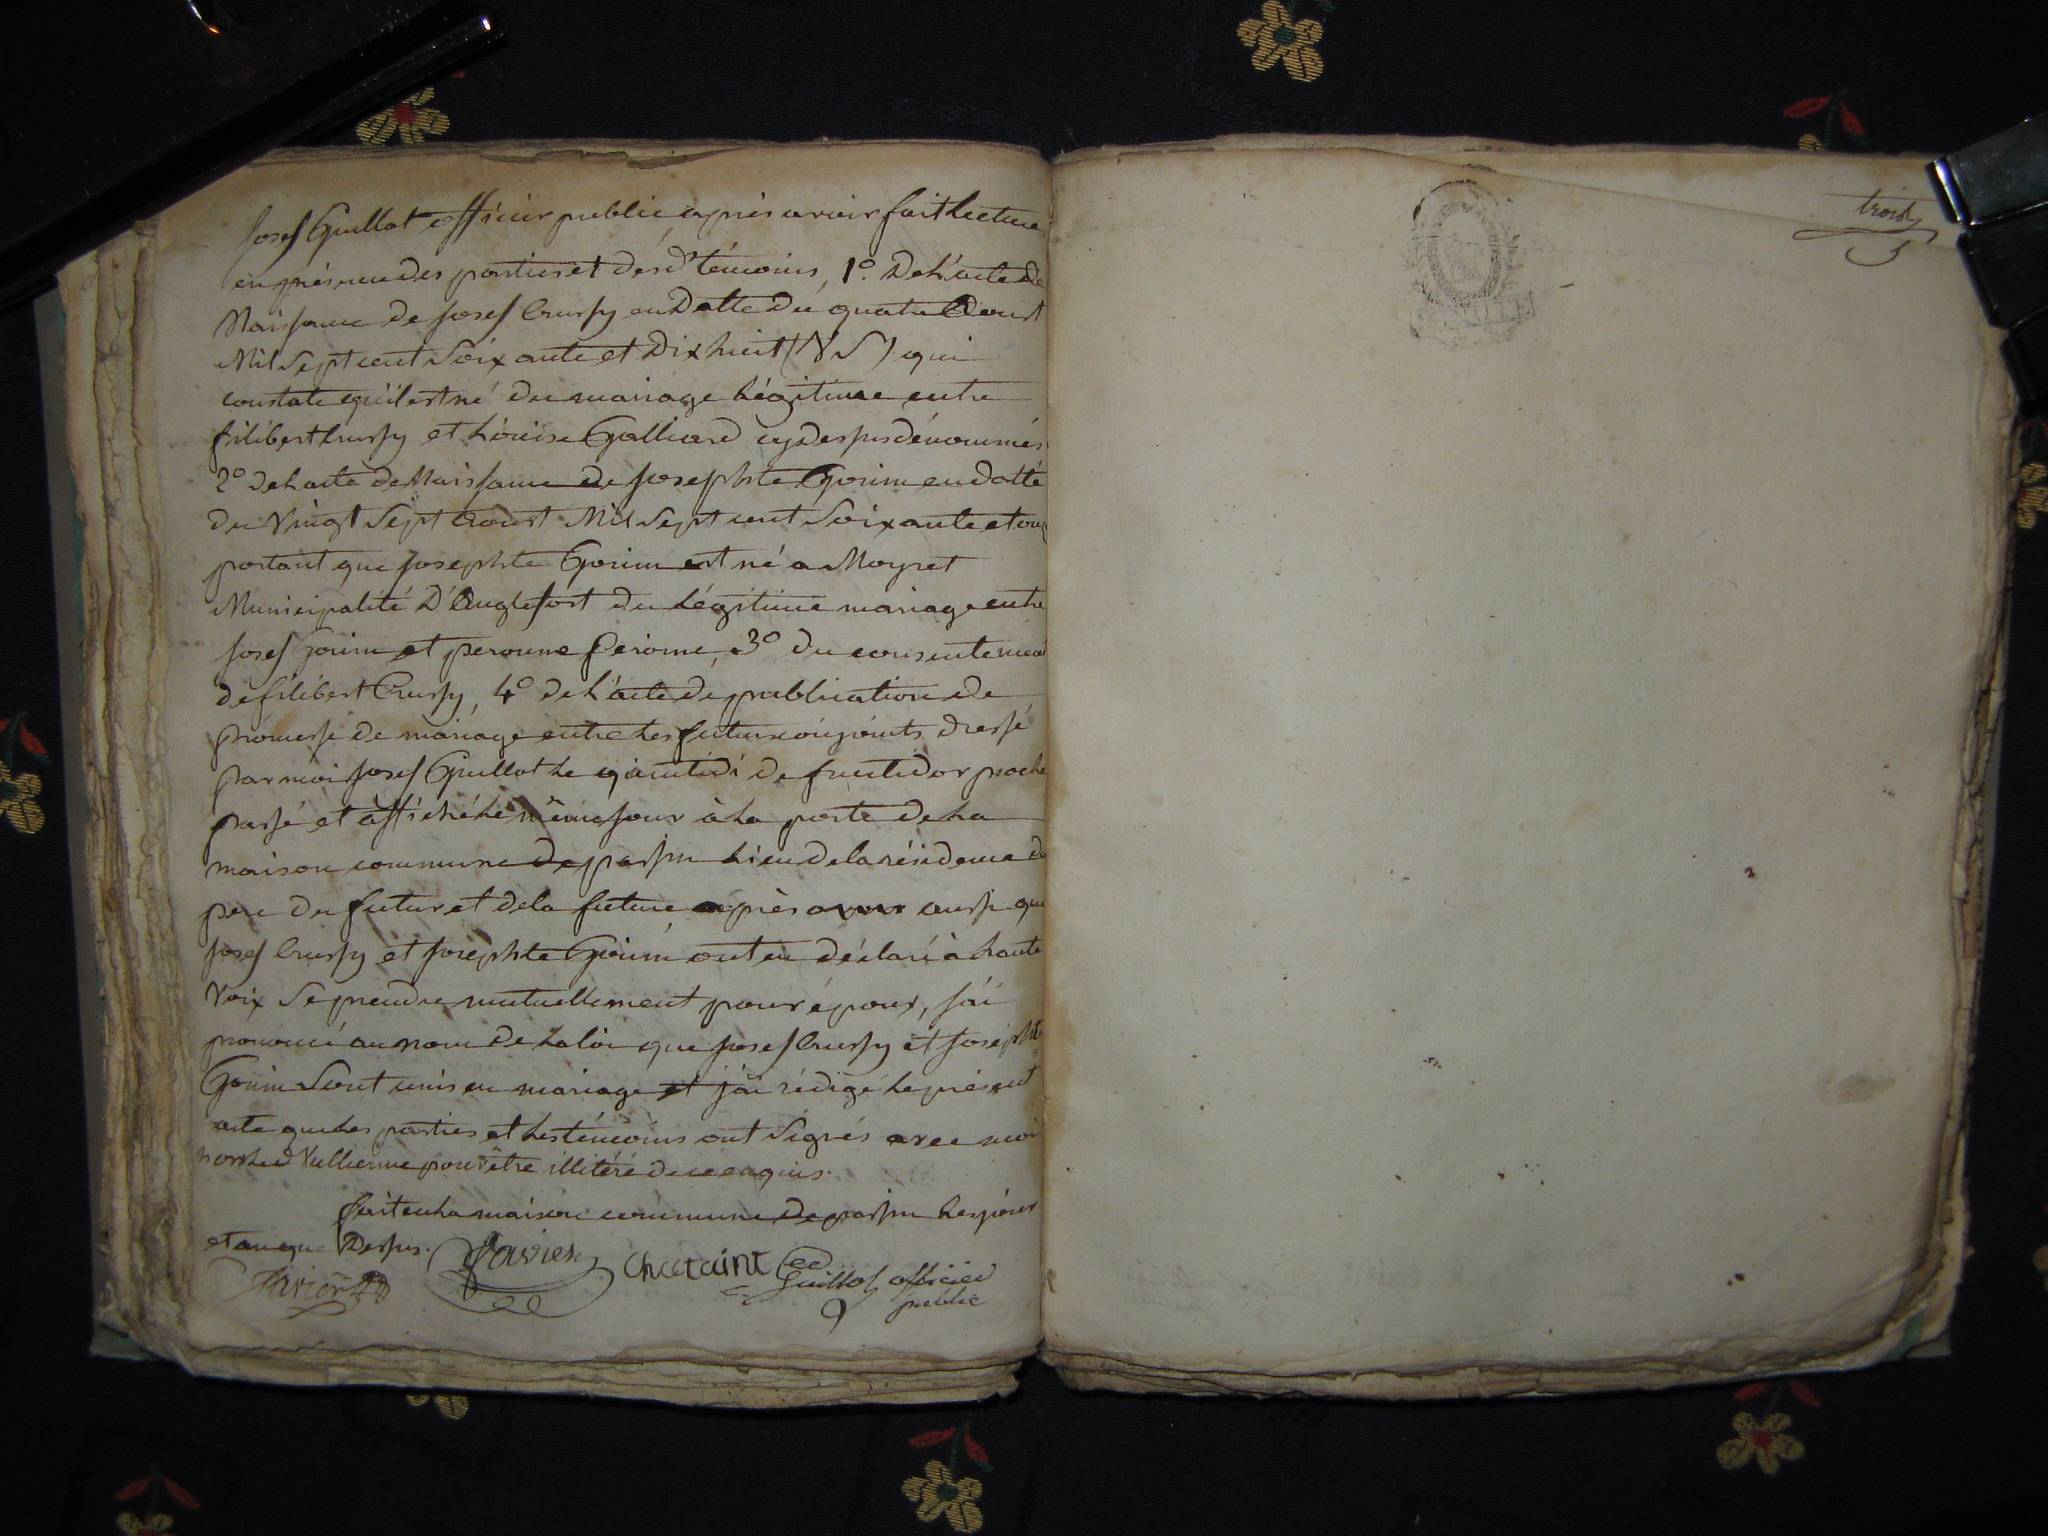 Josef Guillot officier public, après avoir fait lecture
en présence des parties et desd. témoins, 1º. De l'acte de
Naissance de Josef Crussy en Datte du quatre Aoust
Mil Sept cent Soixante et Dix huit (VS) qui
constate qu'il est né du mariage légitime entre
filibert Crussy et Loüise Galliard cy dessus dénommés
2º de l'acte de Naissance de Josephte Gorim en datte
du Vingt Sept Aoust Mil Sept cent Soixante et onz
portant que Josephte Gorim est né a Moyret
Municipalité D'Anglefort du légitime mariage entre
Josef Gorim et peronne Gerome, 3º du consentement
de filibert Crussy, 4º de l'acte de publication de
promesse de mariage entre les futurs conjoints dressé
par moi Josef Guillot le quintidi de fructidor proche
passé et affiché le même jour à la porte de la
maison commune de parsin lieu de la résidence du
pere du futur et de la future après avoir aussi que
Josef Crussy et Josephte Gorim ont eu déclaré à haute
Voix Se prendre mutuellement pour époux, J'ai
prononcé au nom de la loi que Josef Crussy et Josephte
Gorim Sont unis en mariage et j'ai rédigé le présent
acte que les parties et les témoins ont Signés avec moi
non led Vullierme pour être illitéré de ce enquis.
fait en la maison commune de parsin les jour
et an que Dessus. Favier Chataint
Favier Guillot officier
public
trois